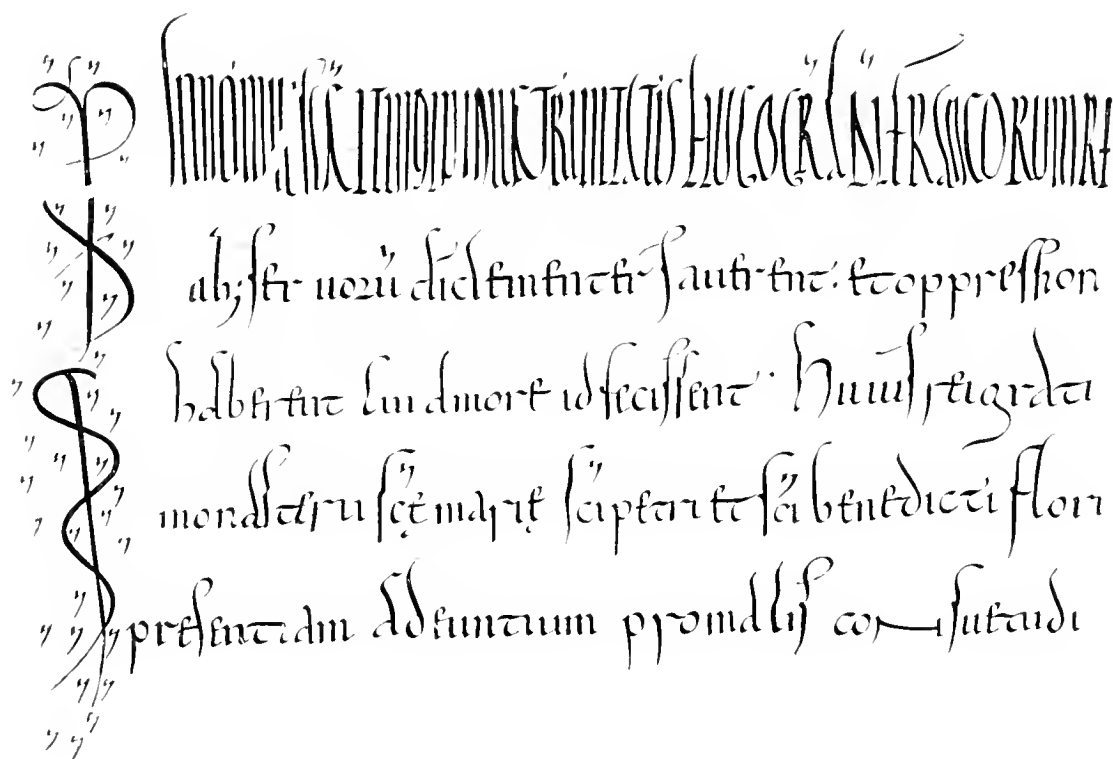 INNOMINE SCE ET INDIVIDUE TRINITATIS HUGO GRA DI FRANCORUM RE
ab; seruorū di clementer fauerent. et oppression
haberent amore id fecissent. Huius rei grati
monasterii scę marię sci petri et sci benedicti flori
presentiam adeuntium pro malis consuetudi